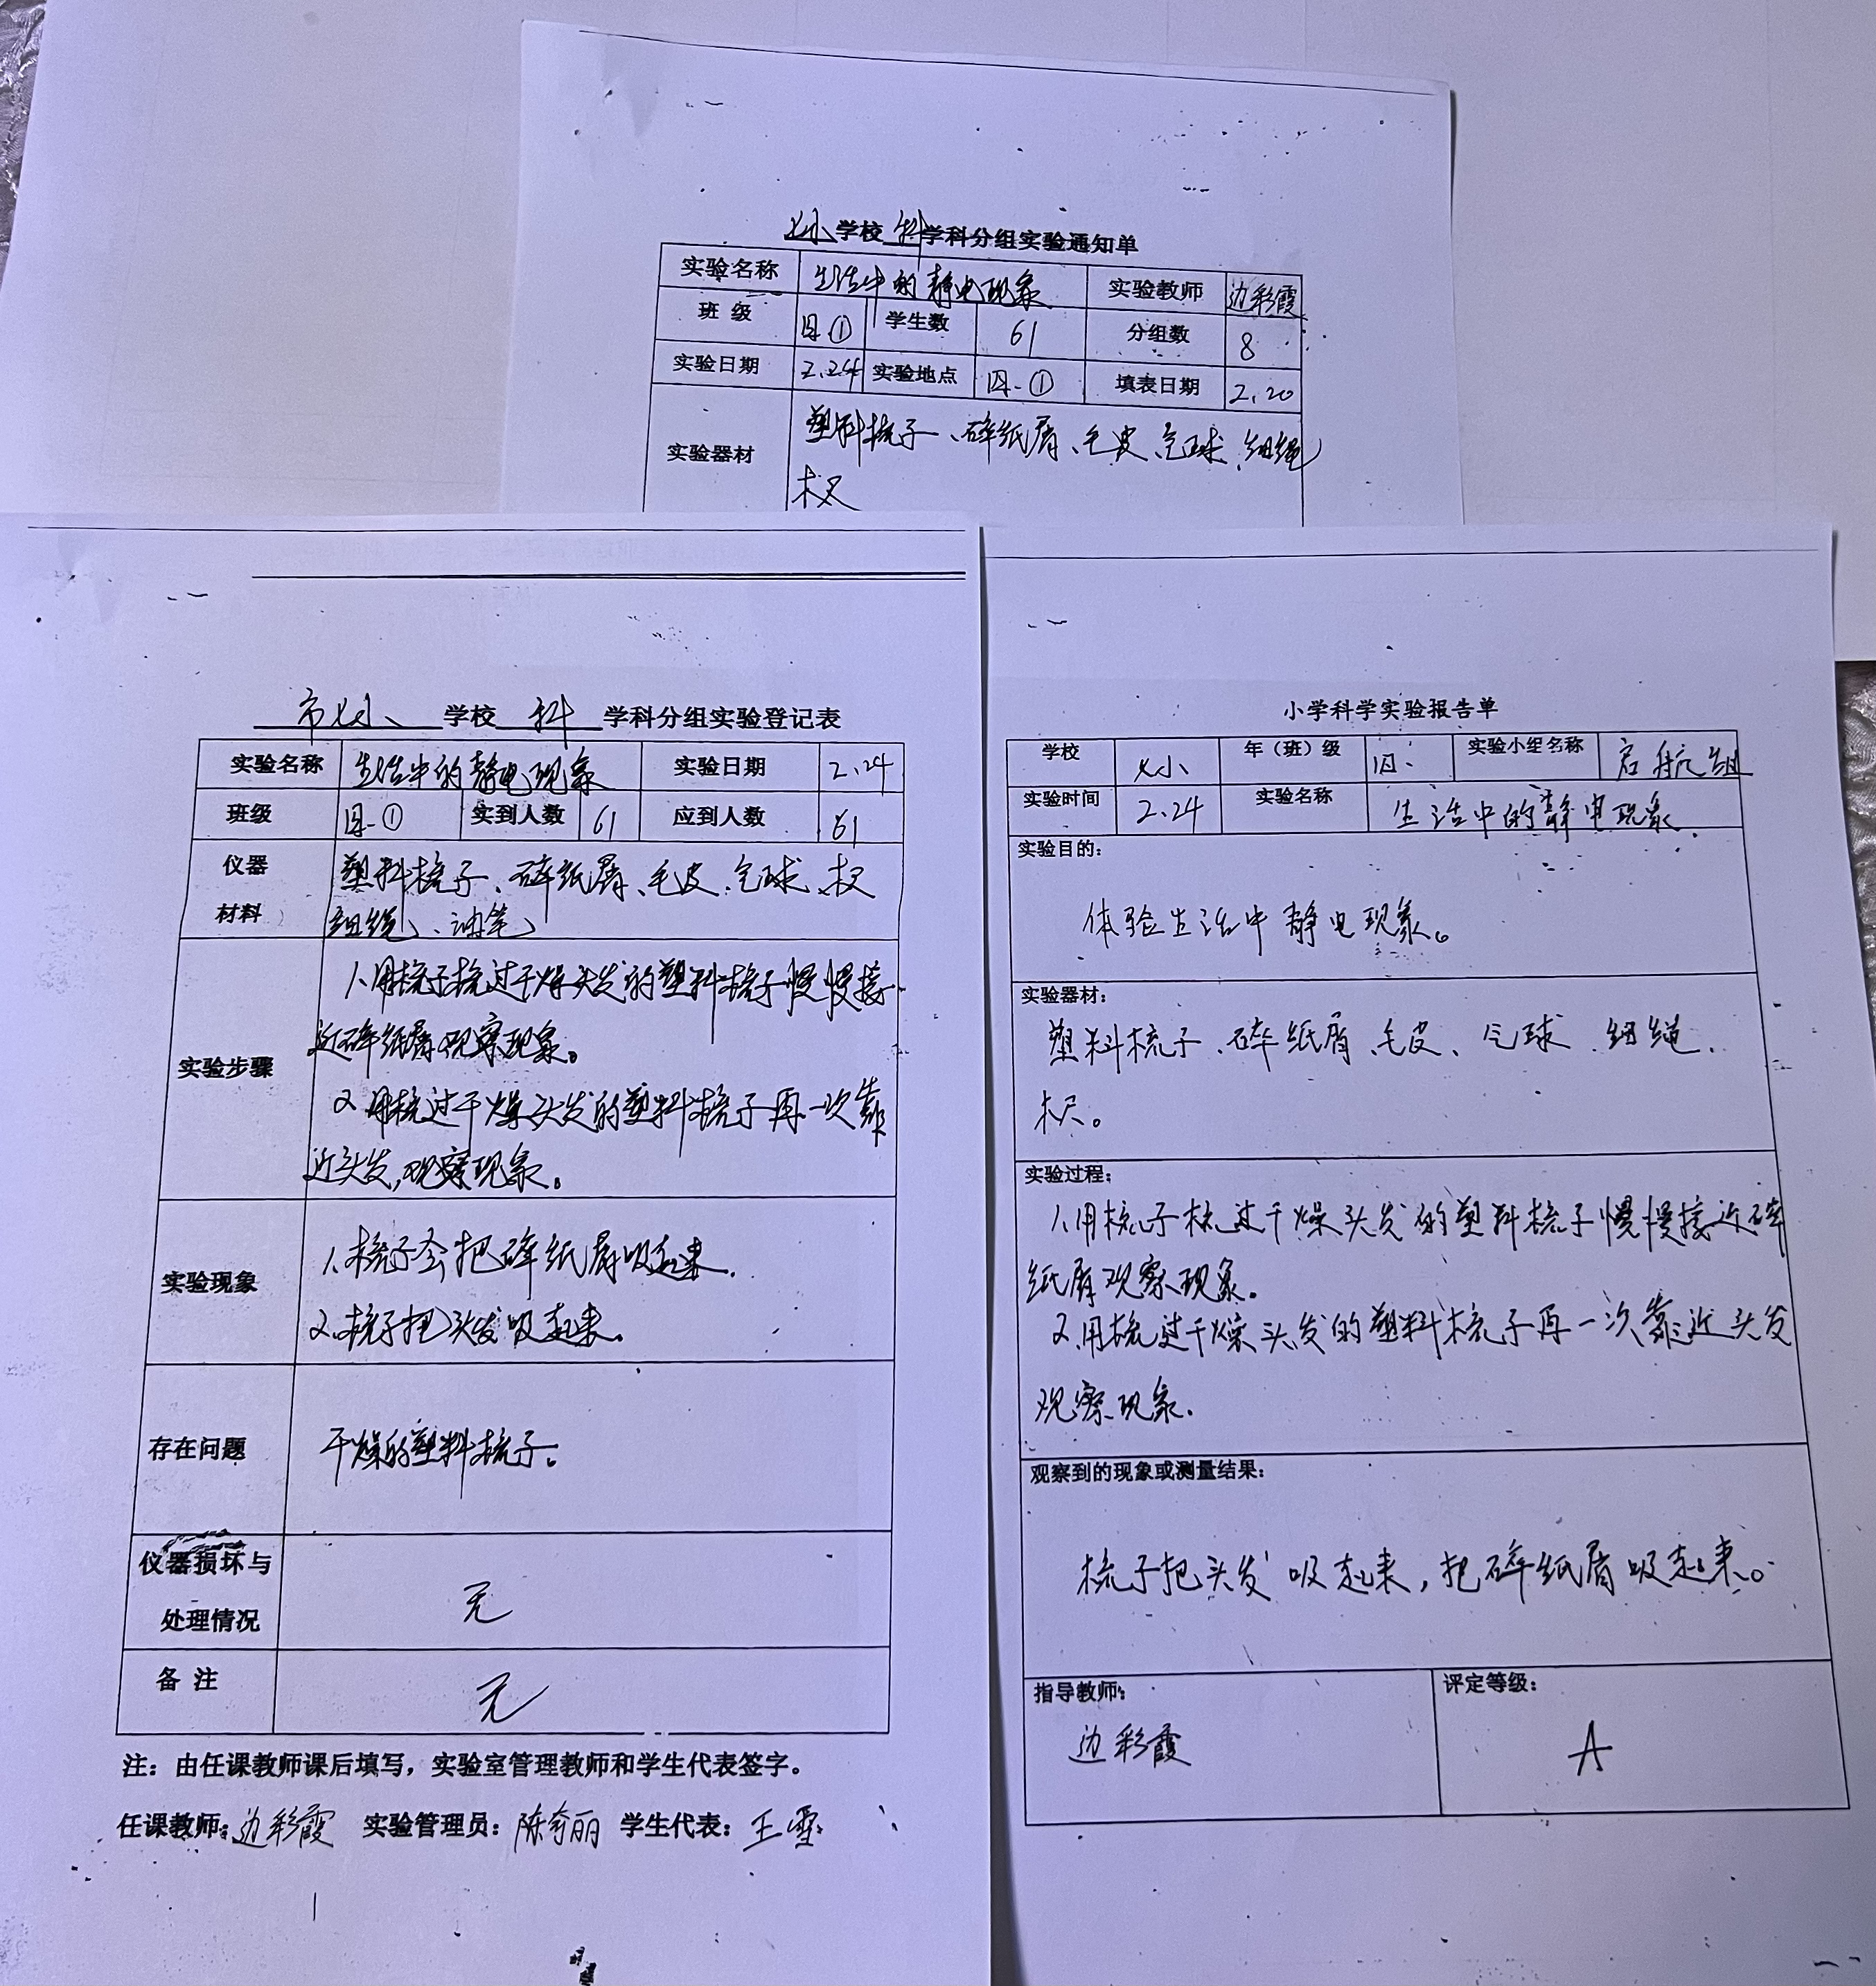 七小学校 科 学科分组实验通知单
实验名称 生活中的静电现象 实验教师 边彩霞
班 级 四① 学生数 61 分组数 8
实验日期 2.24 实验地点 四.① 填表日期 2.20
实验器材 塑料梳子、碎纸屑、毛皮、气球、细绳
木尺
市七小 学校 科 学科分组实验登记表
实验名称 生活中的静电现象 实验日期 2.24
班级 四.① 实到人数 61 应到人数 61
仪器 塑料梳子、碎纸屑、毛皮、气球、木尺
材料 细绳、油笔
1、用梳子梳过干燥头发的塑料梳子慢慢接
近碎纸屑观察现象。
实验步骤
2、用梳过干燥头发的塑料梳子再一次靠
近头发,观察现象。
1、梳子会把碎纸屑吸起来.
实验现象
2、梳子把头发吸起来。
存在问题 干燥的塑料梳子.
仪器损坏与
处理情况 无
备 注 无
注：由任课教师课后填写，实验室管理教师和学生代表签字。
任课教师：边彩霞 实验管理员：陈奇丽 学生代表：王雪
小学科学实验报告单
学校 七小 年（班）级 四. 实验小组名称 启航组
实验时间 2.24 实验名称 生活中的静电现象.
实验目的：
体验生活中静电现象。
实验器材：
塑料梳子、碎纸屑、毛皮、气球、细绳、
木尺。
实验过程：
1、用梳子梳过干燥头发的塑料梳子慢慢接近碎
纸屑观察现象。
2、用梳过干燥头发的塑料梳子再一次靠近头发
观察现象.
观察到的现象或测量结果：
梳子把头发吸起来,把碎纸屑吸起来。
指导教师： 评定等级：
边彩霞 A